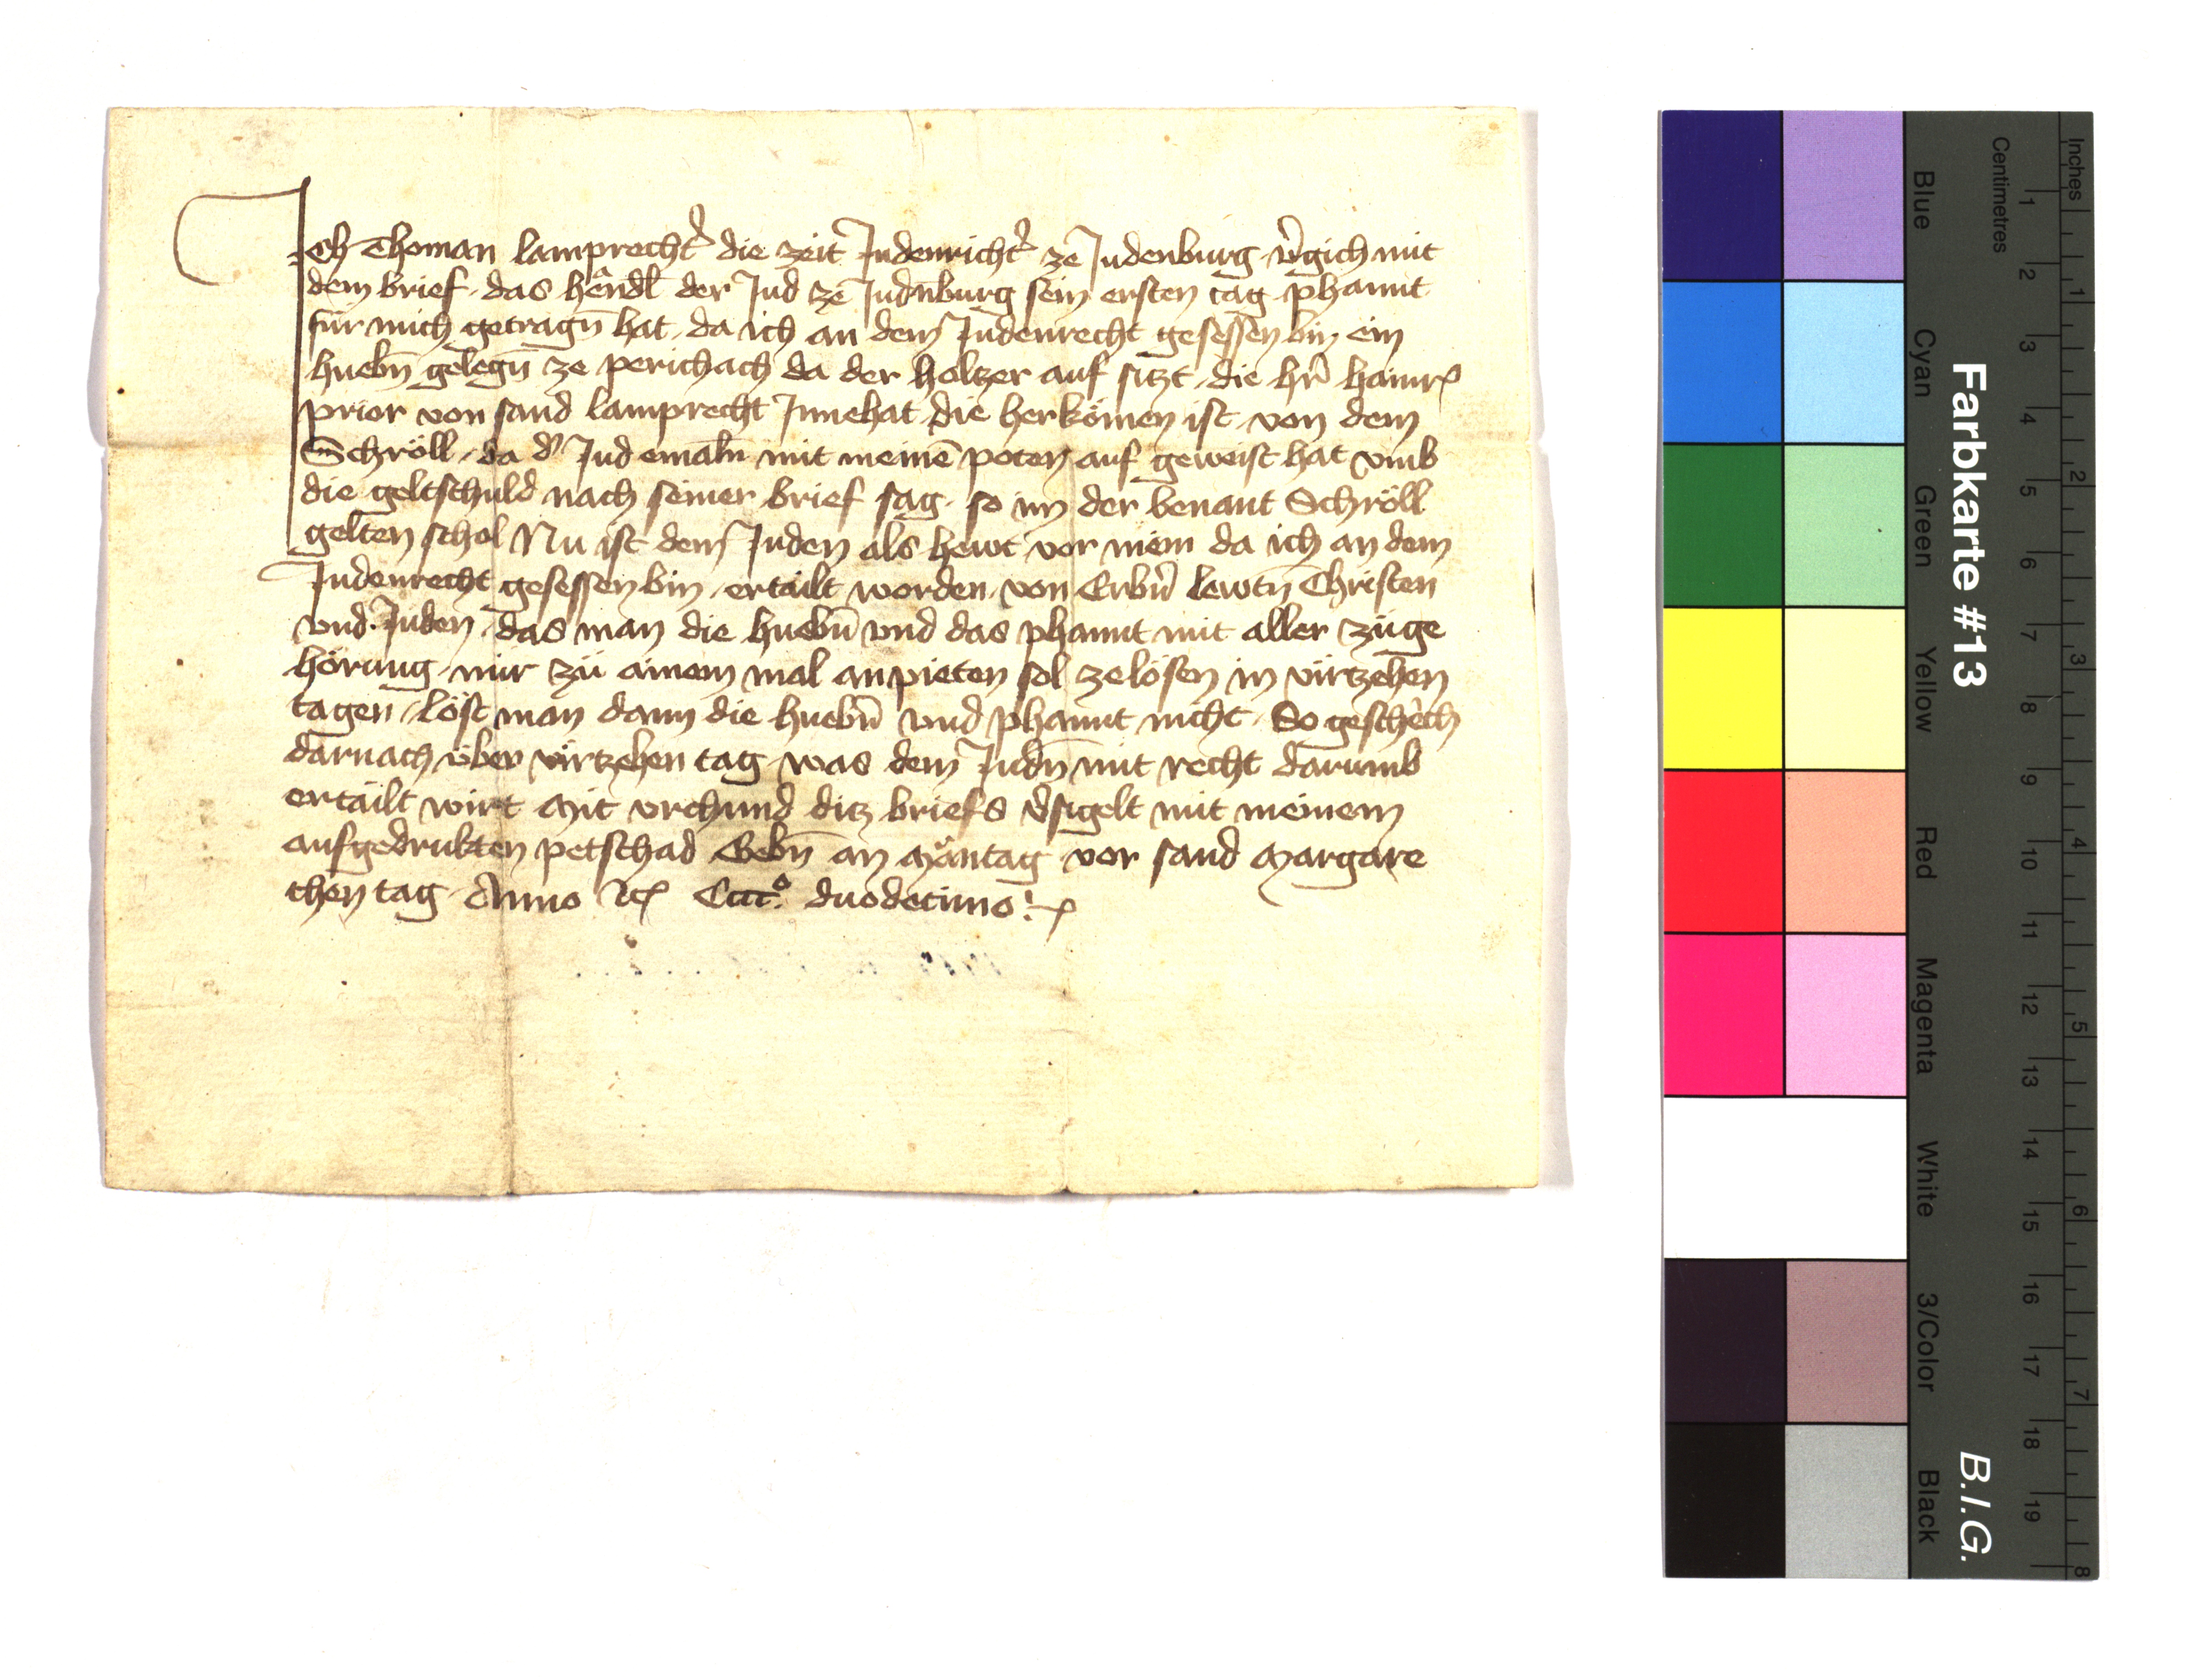 Ich Thoman lamprechtˀ die zeit Judenrichtˀ ze Judenburg vˀgich mit
dem brief das hêndl der Jud ze Judn̄burg sein ersten tag phannt
für mich getragn̄ hat da ich an dem Judenrecht gesessen bin ein
huebn̄ gelegn̄ ze perichach da der holtzer auf sitzt die hrˀ hainrˀ
prior von sand lamprecht Innehat die herkömen ist von dem
Schröll da dˀ Jud emaln̄ mit meinē poten auf geweist hat vmb
die geltschuld nach seiner brief sag so im der benant Schröll
gelten schol Nu ist dem Juden als hewt vor mein da ich an dem
Judenrecht gesessen bin ertailt worden von Erbn̄ lewtn̄ Christen
vnd Juden das man die huebn̄ vnd das phannt mit aller zuge
hörung mir zu ainem mal anpieten sol ze lösen in virtzehen
tagen löst man dann die huebn̄ vnd phannt nicht So geschech
darnach über virtzehen tag was dem Judn̄ mit recht darumb
ertailt wirt Mit vrchund ditz briefs vˀsigelt mit meinem
aufgedrukten petschad Gebn̄ an Mäntag vor sand Margare
then tag Anno etc Cccc.º duodecimo
Farbkarte #13
B.I.G.
Centimetres
Inches
Blue Cyan Green Yellow Red Magenta White 3/Color Black
1 2 3 4 5 6 7 8 9 10 11 12 13 14 15 16 17 18 19
1 2 3 4 5 6 7 8